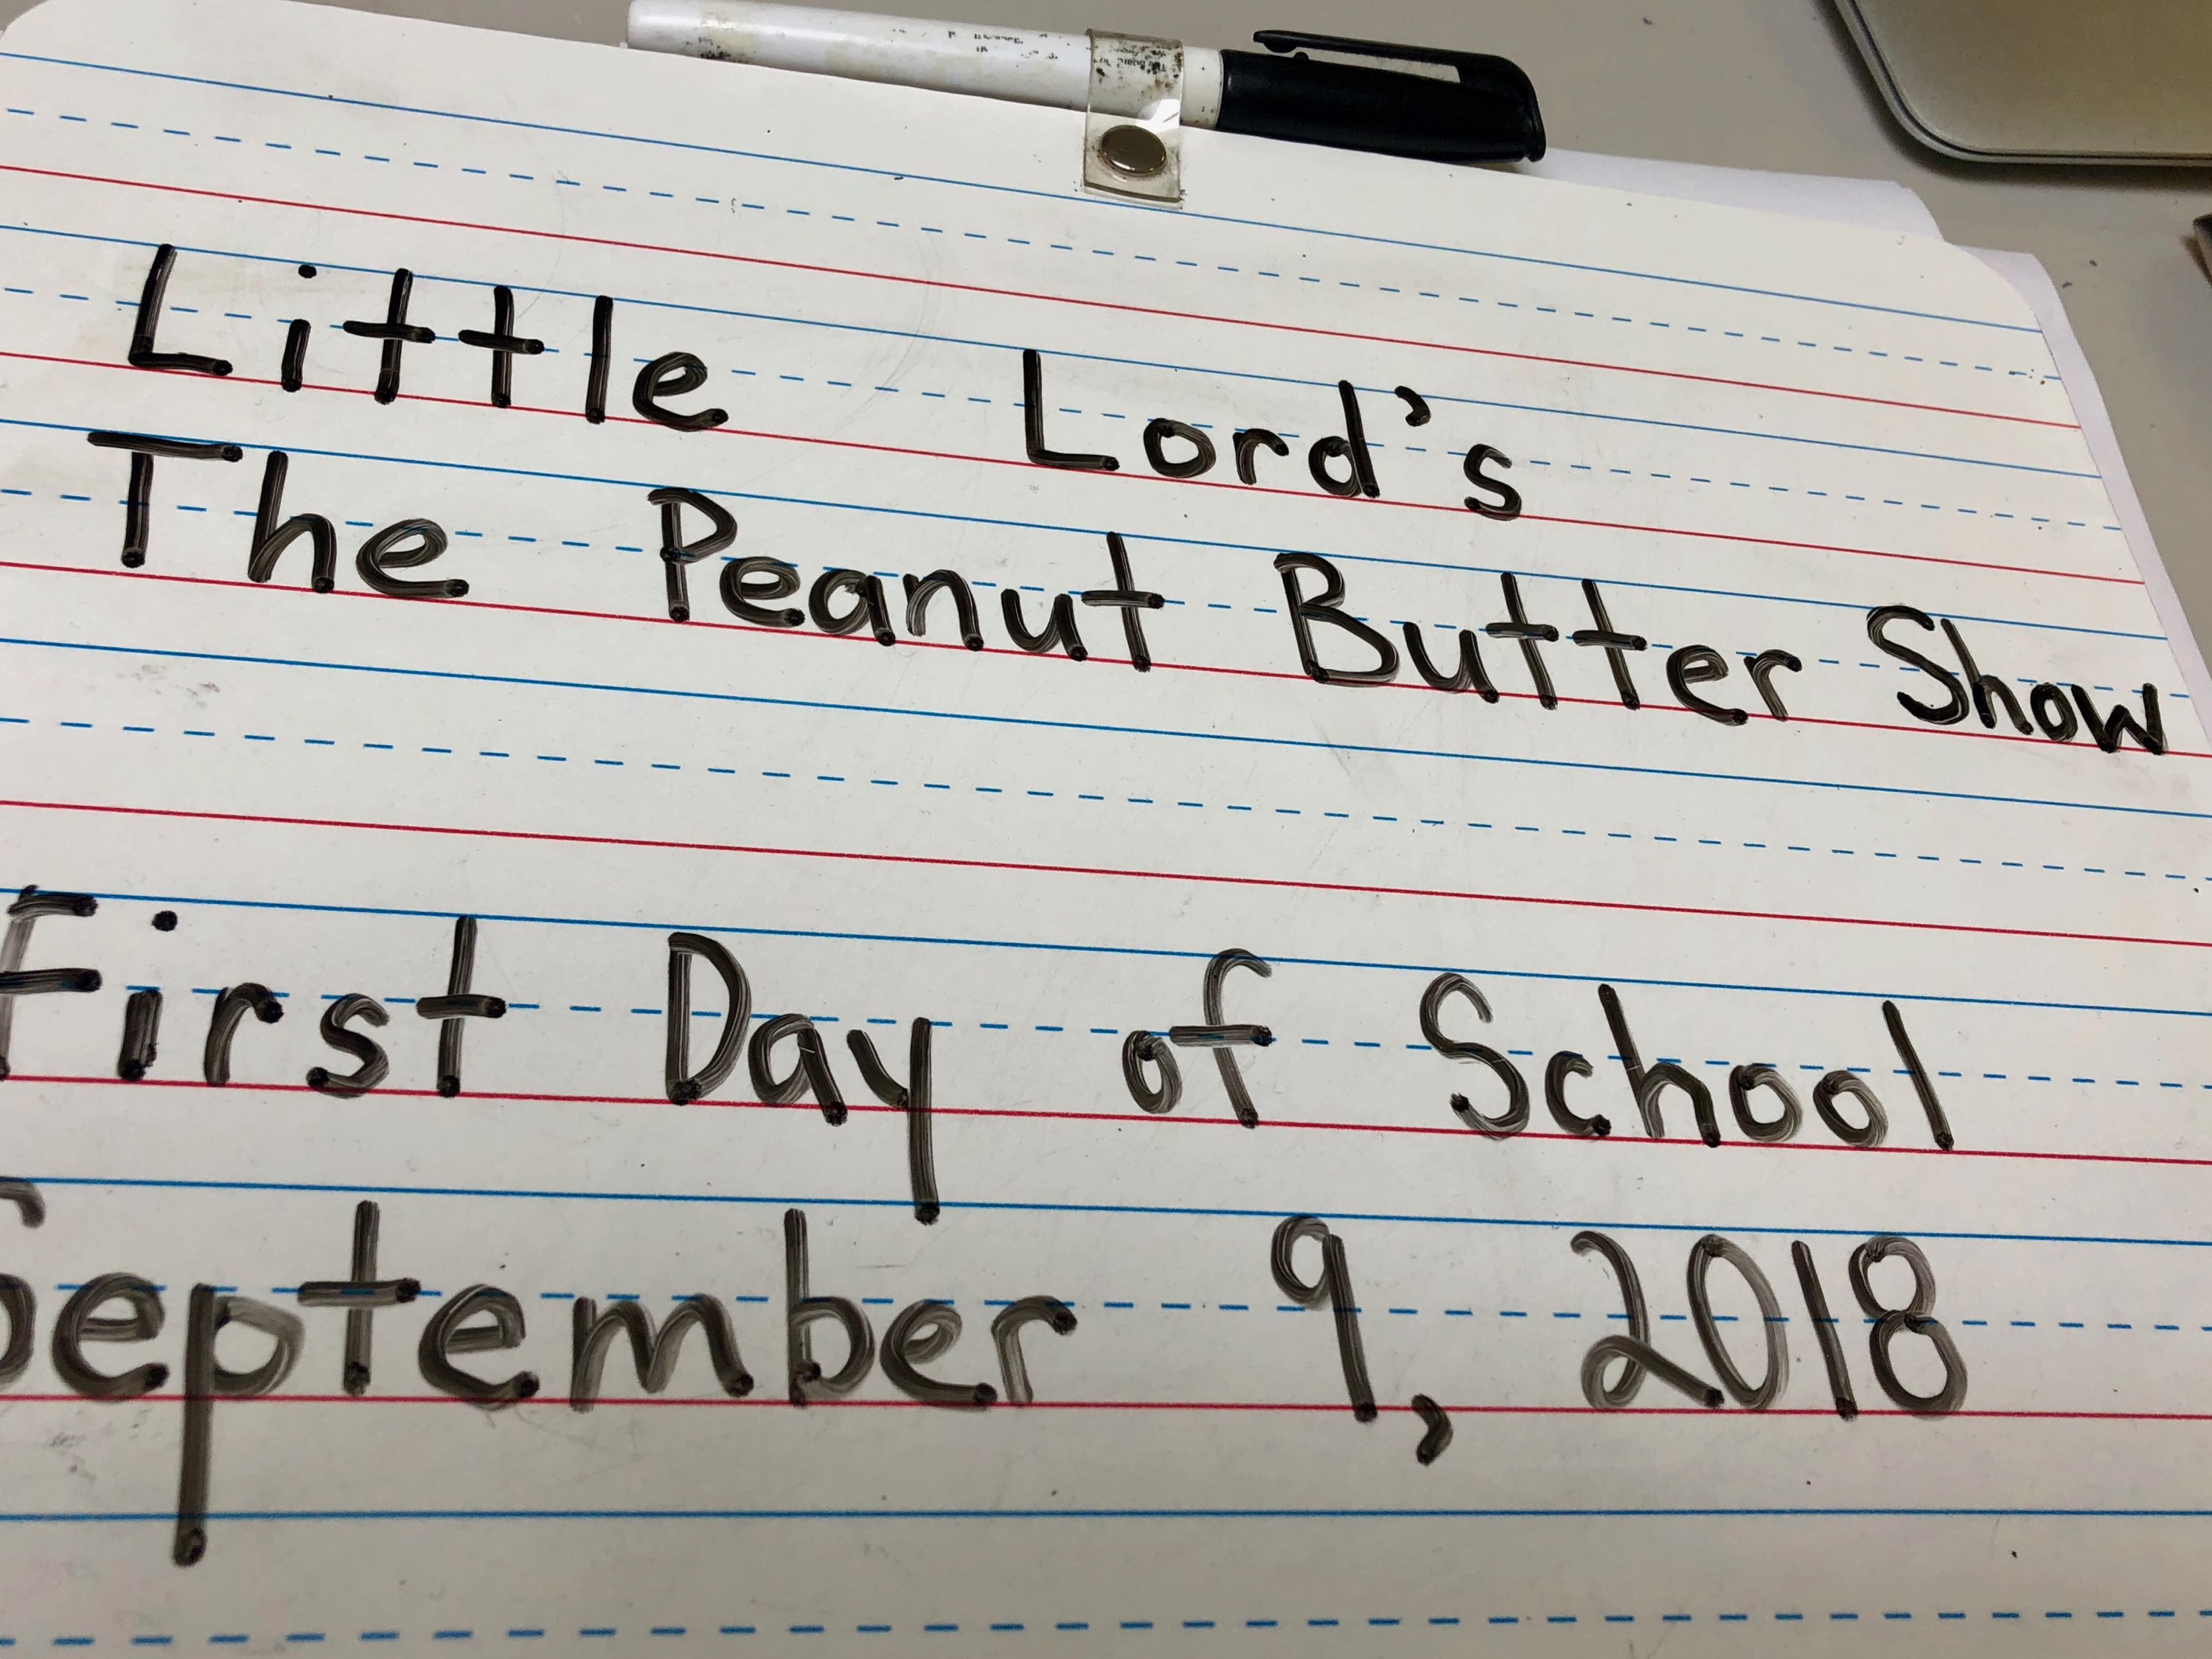 Little Lord's
The Peanut Butter Show
First Day of School
September 9, 2018